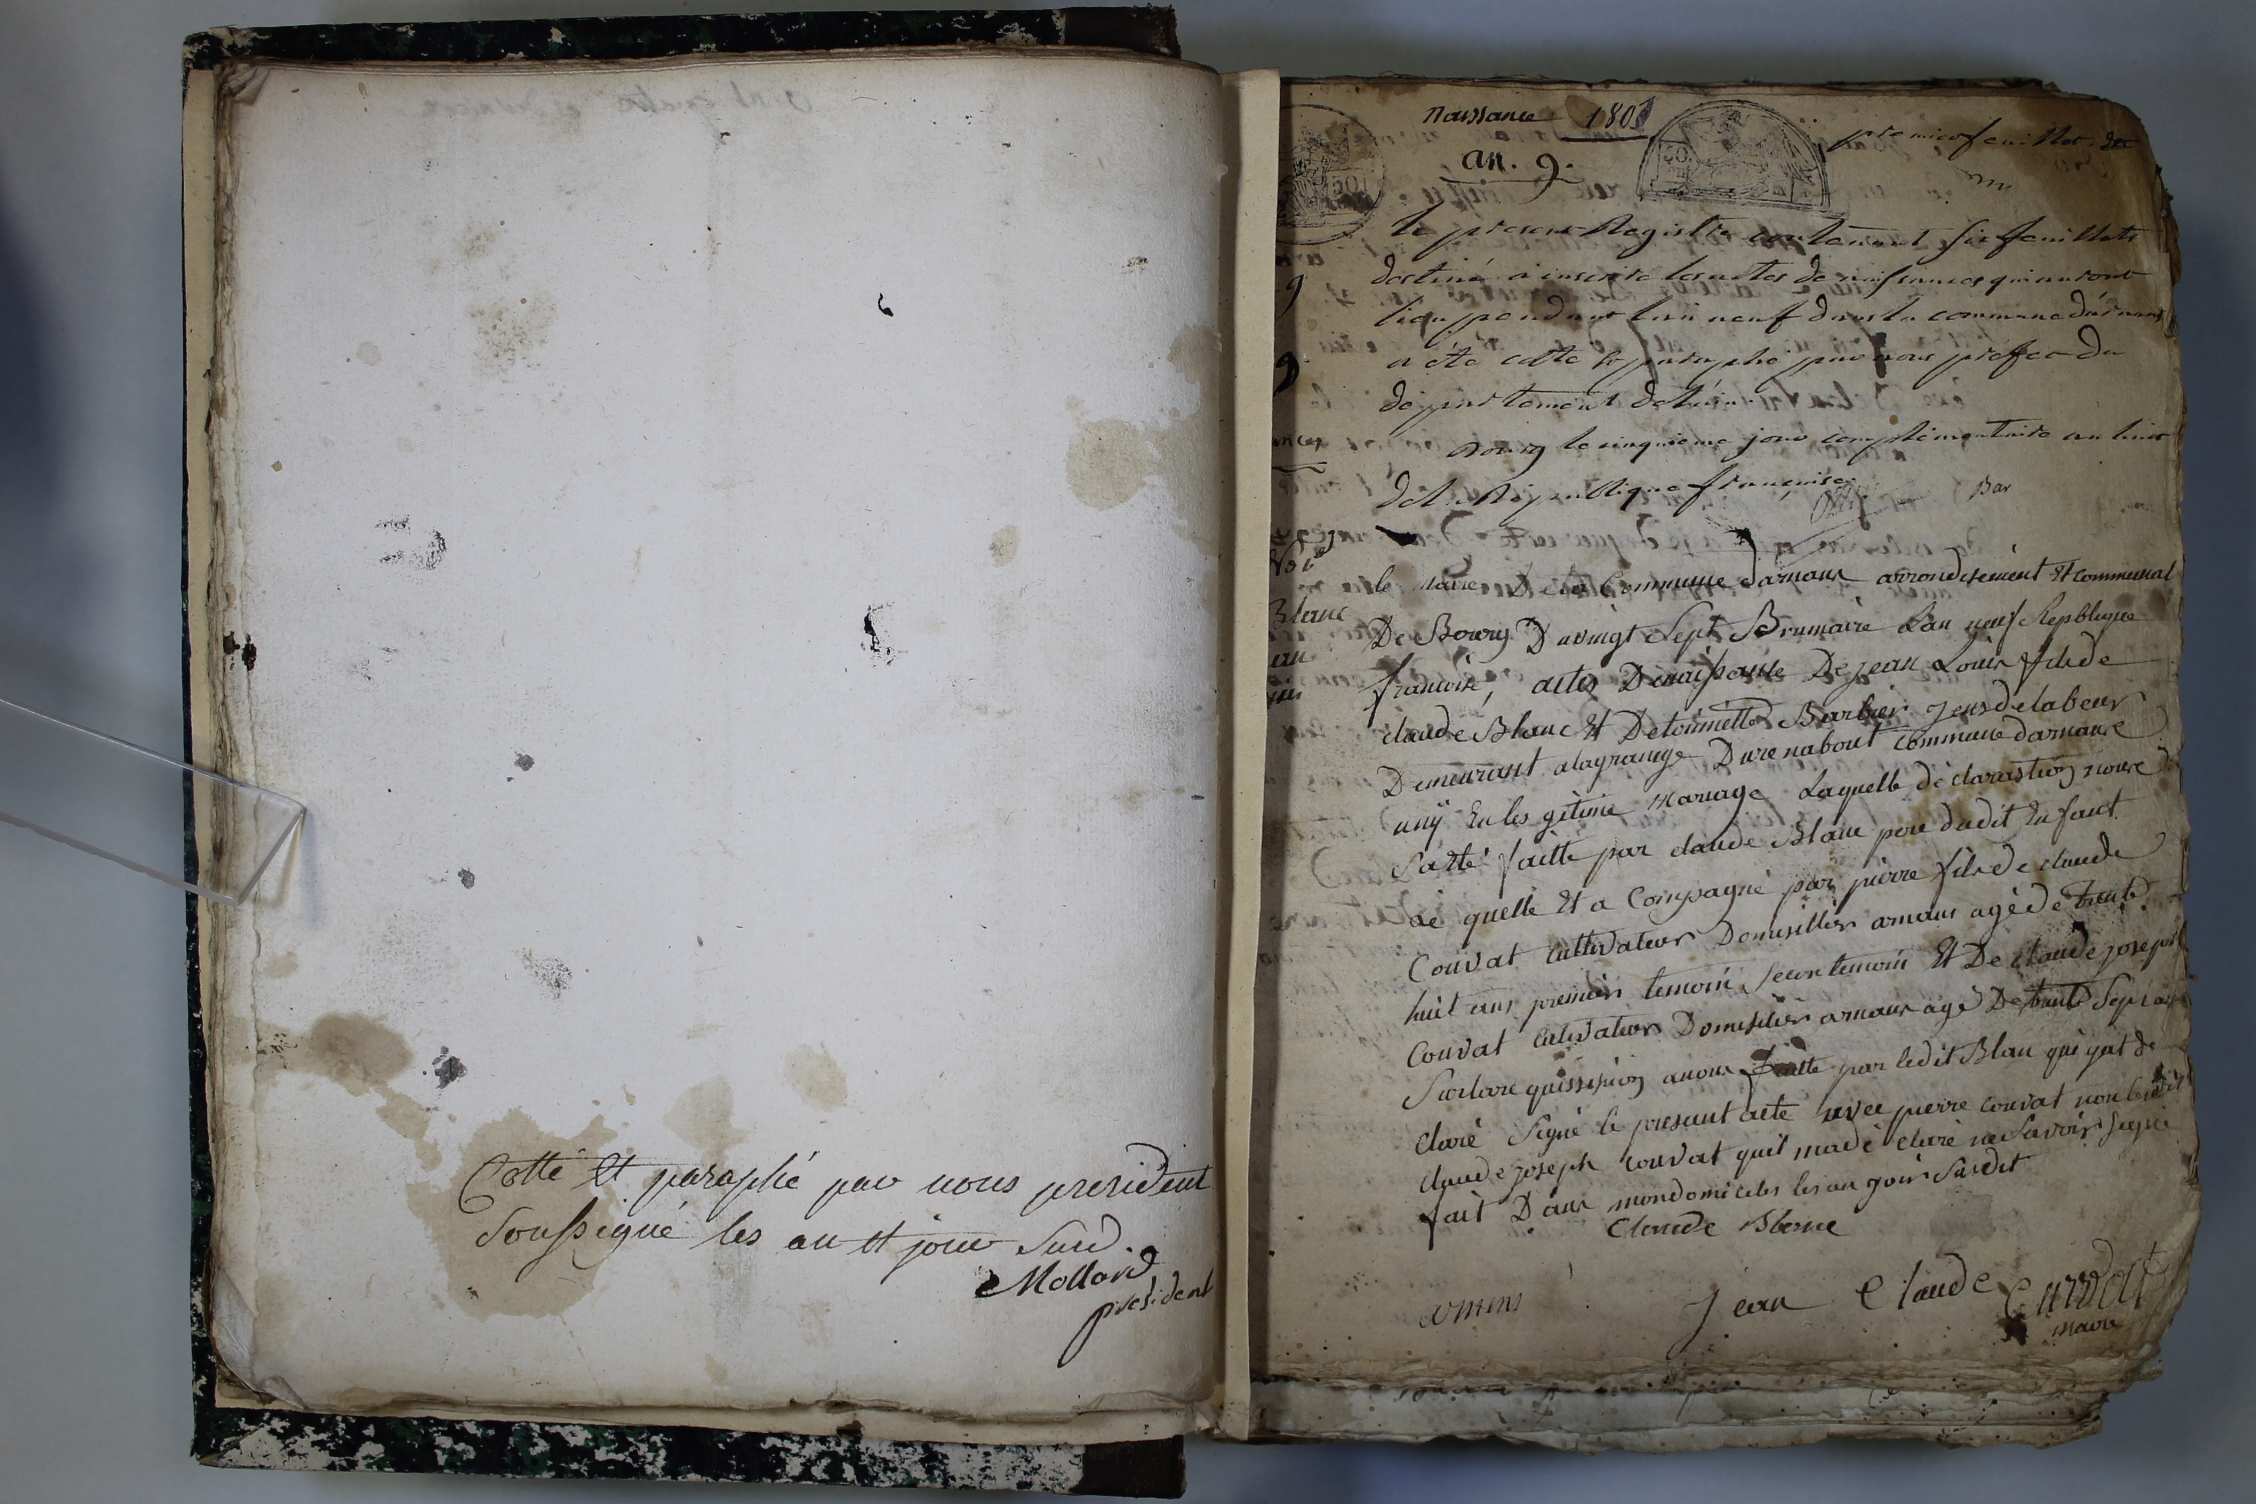 Cotté Et paraphé par nous president
Soussigné les an et jour Susd.
Mollard
président
naissance 1801
an. 9.
premier feuillet
Bar
le present Registre contenant six feuillets
destiné a inscrire les actes de naissances qui auront
lieu pendant l'an neuf dans la commune d'arnans
a été cotté et paraphé par nous préfet du
département de l'ain.
Bourg le cinquieme jour complémentaire an huit
de la République française.
le maire De la Commune darnans arrondisement Et communal
De Bourg Du vingt Sept Brumaire Lan neuf Republique
francoise, actes De naissance De jean Louis fils de
claude Blanc Et De toinette Barbier jens de labeur
Demeurant a la grange Du renabout commune darnans
uny En les gitime mariage Laquelle déclaration nous
a été faitte par claude Blanc pere dudit Enfant
le quelle Et a Compagné par pierre fils de claude
Couvat Cultivateur Domisillier arnans agé de trente
huit ans premier temoin Et De claude joseph
Couvat Cultivateur Domisilier arnans agé De trente Sept ans
Sur la requissision a nous faitte par ledit Blanc qui
claré Signé le present acte avec pierre couvat non le dit
claude joseph couvat quil ma dé claré ne Savoir Signé
fait Dans mon domicile les an jour Susdit
Claude Blanc
Jean Claude Curvat
maire